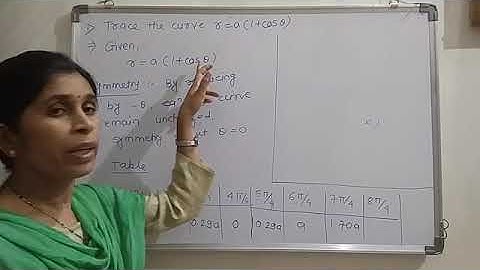 ⇒ Trace the curve r = a (1+cosθ)
⇒ Given,
r = a (1+cosθ)
symmetry :- By
by -θ, curve
remain
symmetry θ = 0
Table
4π/4 5π/4 6π/4 7π/4 8π/4
0.29a 0 0.29a a 1.70a